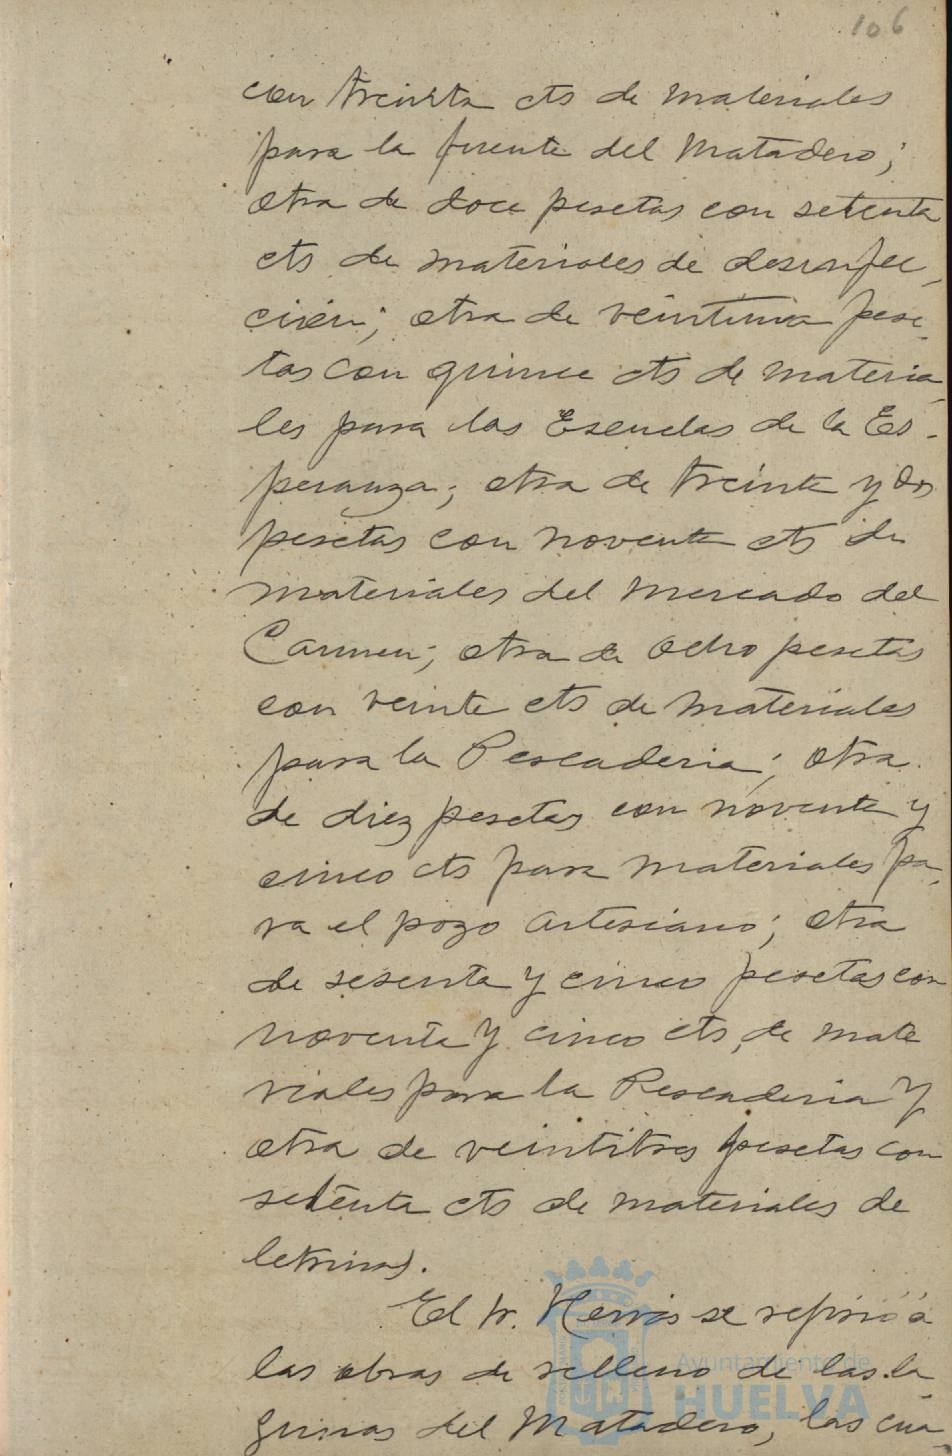 106
con treinta cts de materiales
para la fuente del Matadero;
otra de doce pesetas con setenta
cts de materiales de desinfec-
ción; otra de veintiuna pese-
tas con quince cts de materia-
les para las Escuelas de la Es-
peranza; otra de treinta y dos
pesetas con noventa cts de
materiales del Mercado del
Carmen; otra de ocho pesetas
con veinte cts de materiales
para la Pescaderia; otra
de diez pesetas con noventa y
cinco cts para materiales pa-
ra el pozo artesiano; otra
de sesenta y cinco pesetas con
noventa y cinco cts de mate
riales para la Pescaderia y
otra de veintitres pesetas con
setenta cts de materiales de
letrinas.
El Sr. se refirió á
las obras de relleno de las la-
gunas del Matadero, las cua-
Ayuntamiento de
HUELVA